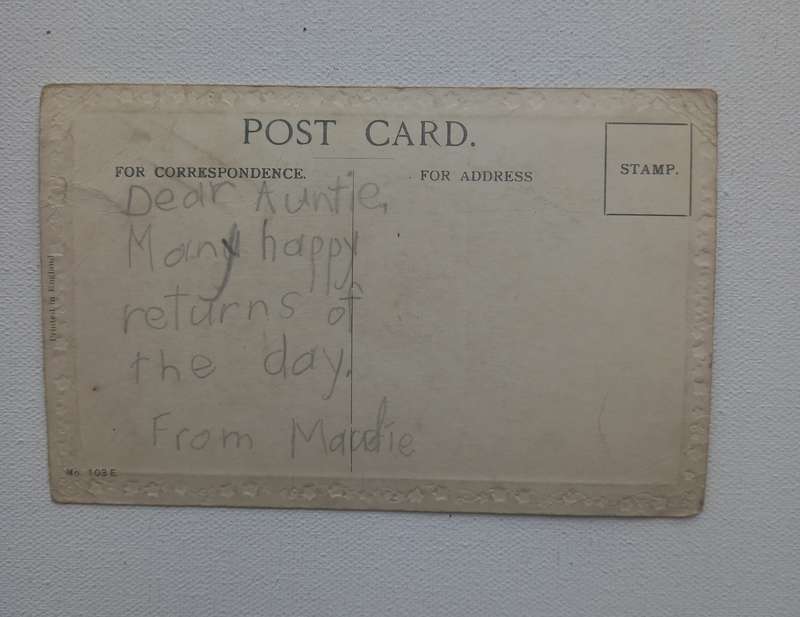 POST CARD.
FOR CORRESPONDENCE.
FOR ADDRESS
STAMP.
Dear Auntie,
Many happy
returns of
the day.
From Maudie
Printed in England
No. 103 E